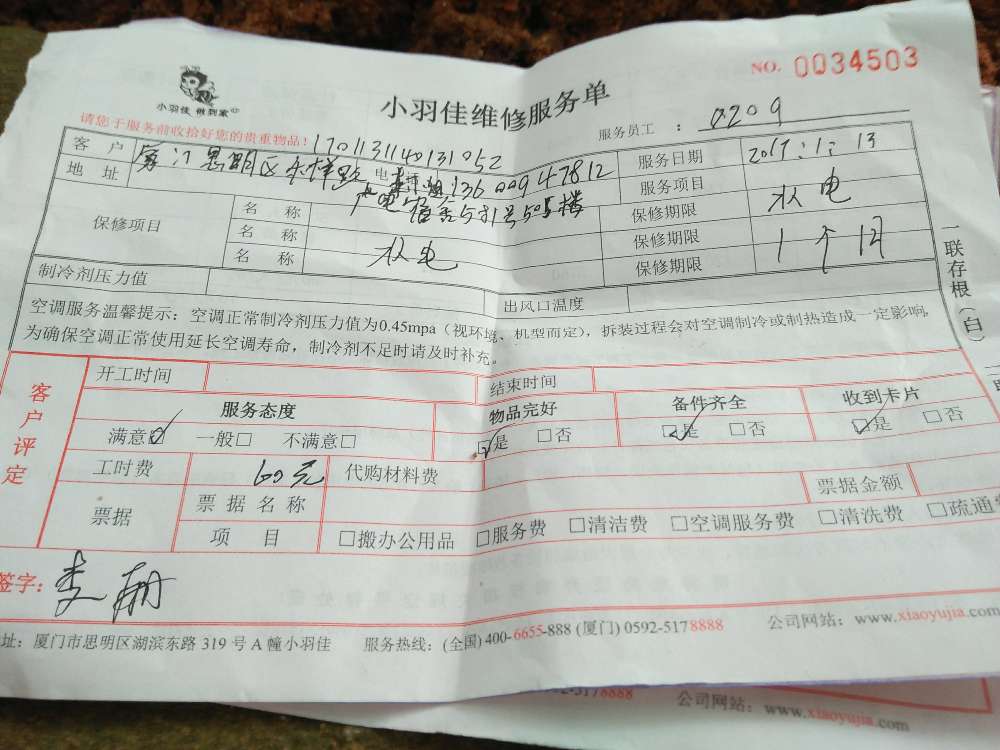 NO. 0034503
小羽佳 做到家
小羽佳维修服务单
请您于服务前收拾好您的贵重物品!
服务员工 : 0209
客户 170113114013 1052
服务日期 2017.1.13
地址 厦门思明区 电话 13600947812
服务项目 水电
宿舍 号 楼
保修项目
名称
保修期限
名称 水电
保修期限 1个月
名称
保修期限
制冷剂压力值
出风口温度
空调服务温馨提示:空调正常制冷剂压力值为0.45mpa(视环境、机型而定),拆装过程会对空调制冷或制热造成一定影响,
为确保空调正常使用延长空调寿命,制冷剂不足时请及时补充。
一联存根(白)
客户评定
开工时间
结束时间
服务态度
物品完好
备件齐全
收到卡片
满意☑ 一般□ 不满意□
☑是 □否
☑是 □否
☑是 □否
工时费 60元 代购材料费
票据
票据名称
票据金额
项目
□搬办公用品 □服务费 □清洁费 □空调服务费 □清洗费 □疏通
签字:
址:厦门市思明区湖滨东路 319 号 A 幢小羽佳 服务热线:(全国) 400-6655-888 (厦门) 0592-5178888 公司网站:www.xiaoyujia.com
公司网站:www.xiaoyujia.com